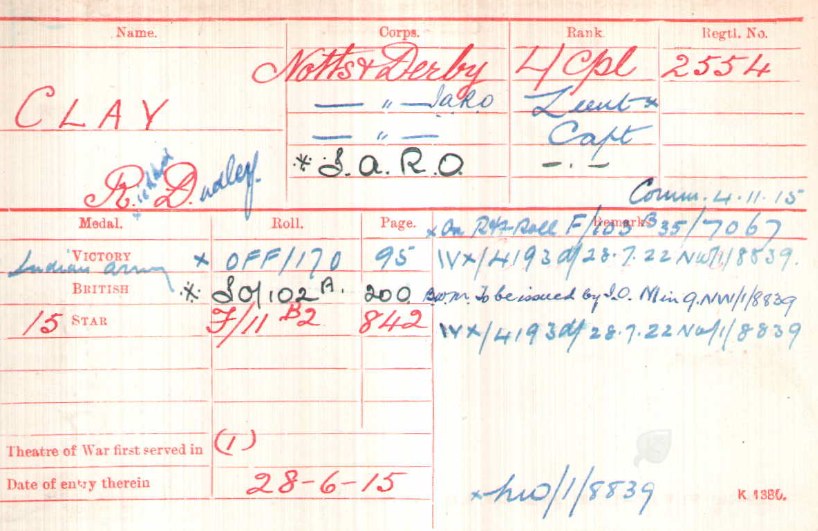 Name. Corps. Rank. Regtl. No.
Notts & Derby L/Cpl 2554
CLAY — " — IARO Lieut x
— " — Capt
* I.A.R.O. — . —
R.ichard Dudley.
Comm. 4.11.15
Medal. Roll. Page. Remarks
x On R&F Roll F/103 B35/7067
VICTORY x OFF/170 95 IVX/4193 d/28.7.22 NW/1/8839.
Indian Army
BRITISH * IO/102A. 200 BWM. To be issued by I.O. Min 9. NW/1/8839
15 STAR F/11 B2 842 IVX/4193 d/28.7.22 NW/1/8839
Theatre of War first served in (1)
Date of entry therein 28-6-15
x NW/1/8839 K 1380.